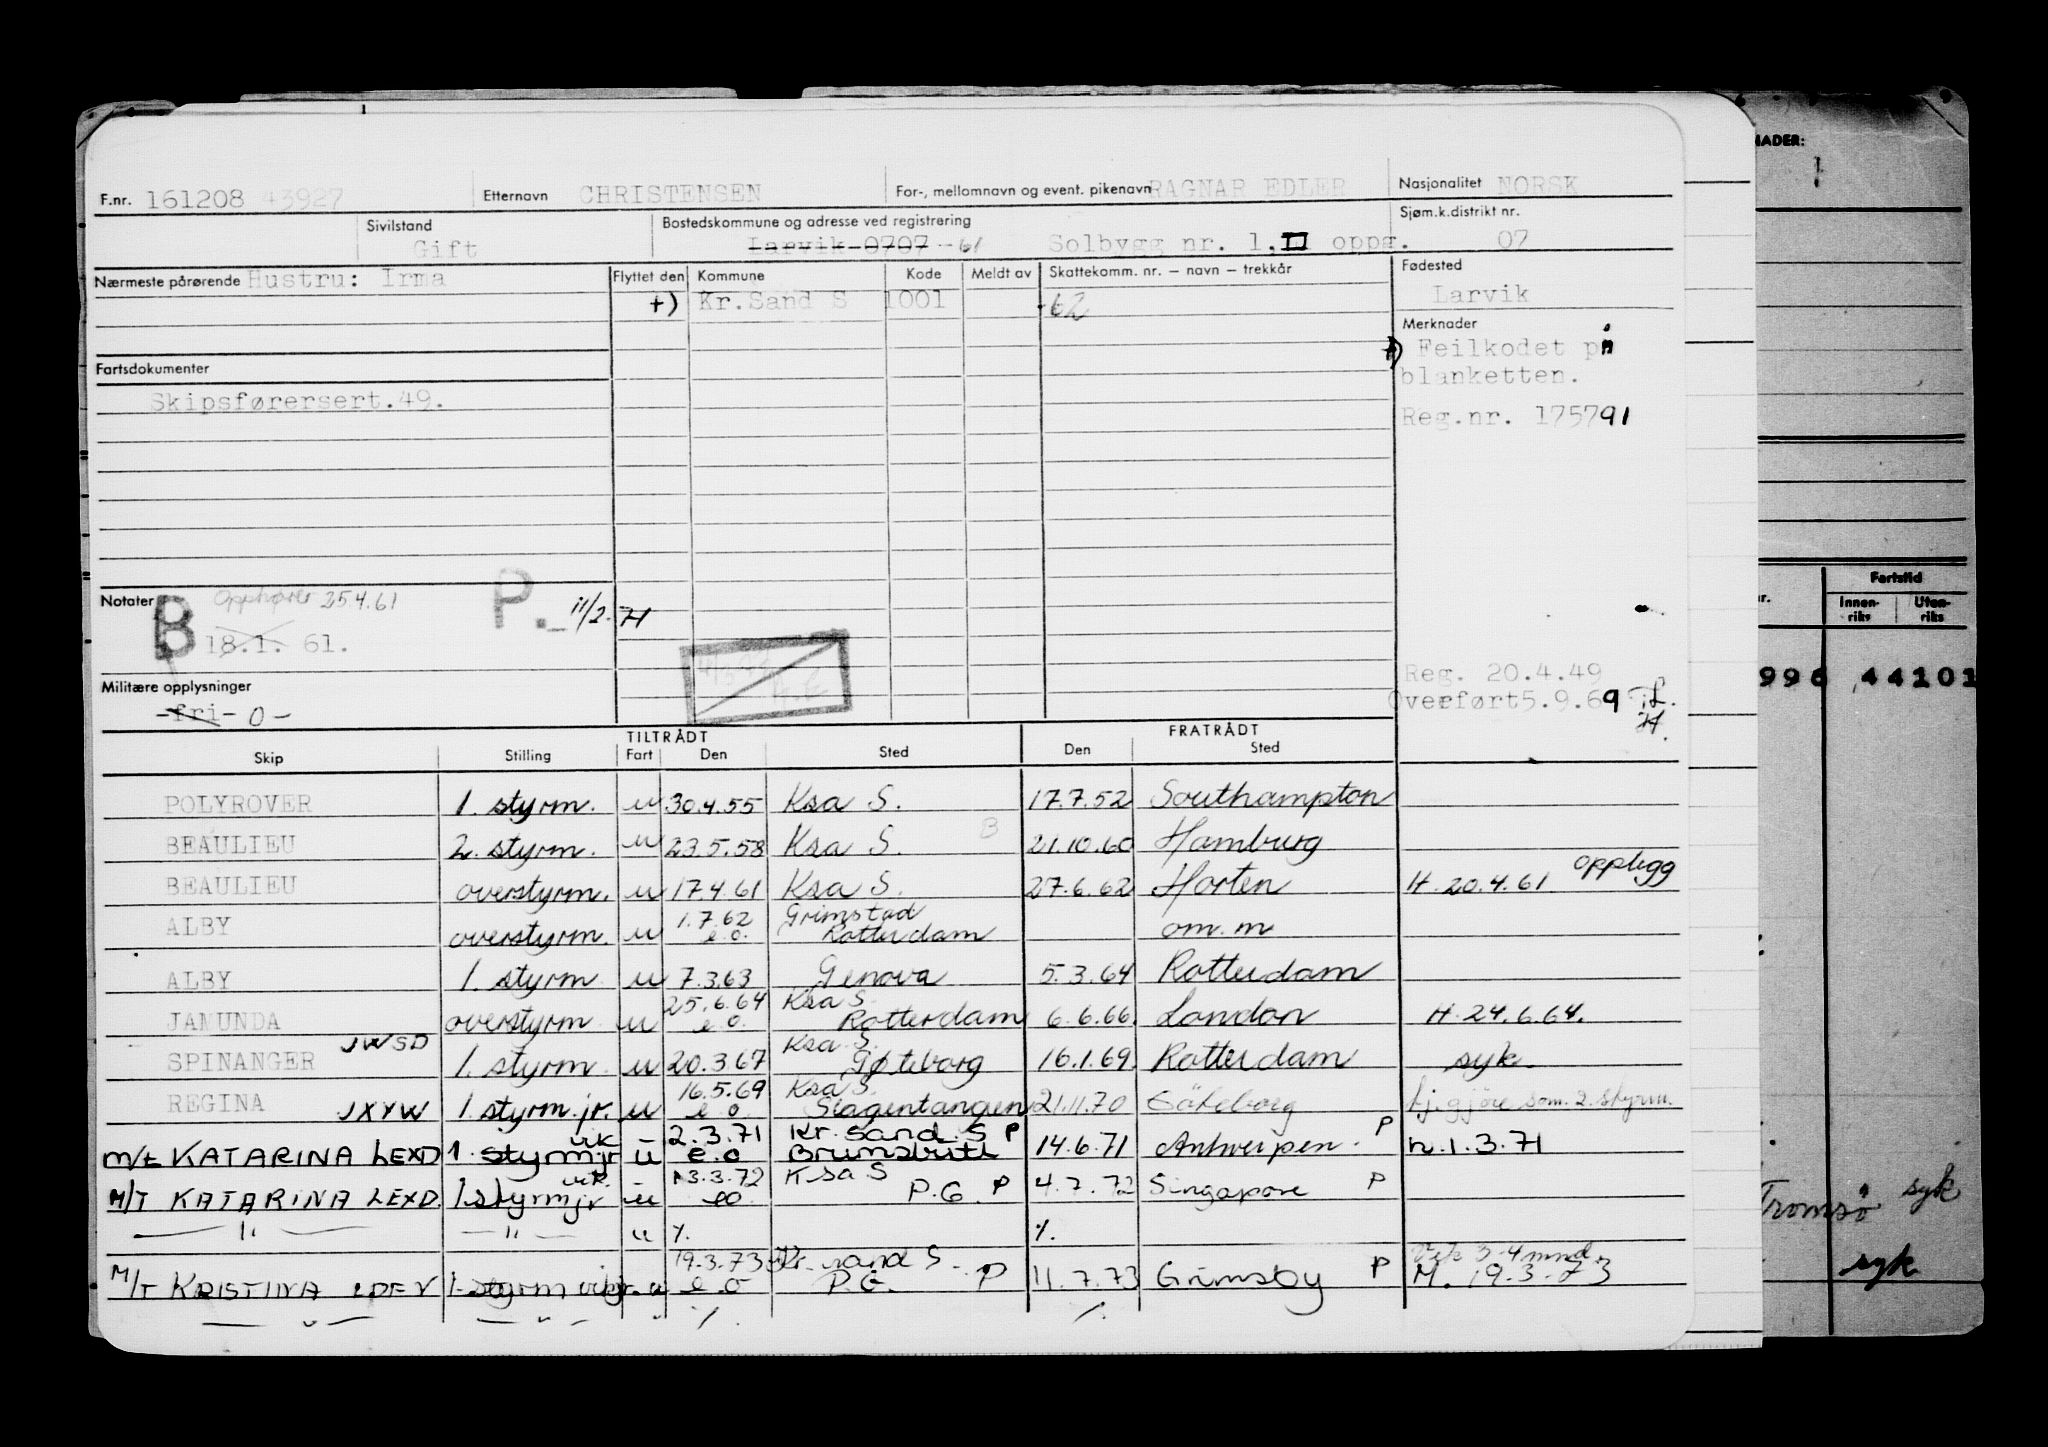 F.nr. 161208 43927 Etternavn CHRISTENSEN For-, mellomnavn og event. pikenavn RAGNAR EDLER Nasjonalitet NORSK
Sivilstand Gift Bostedskommune og adresse ved registrering Larvik 0707 -61 Solbygg nr. 1, II oppg. Sjøm.k.distrikt nr. 07
Nærmeste pårørende Hustru: Irma Flyttet den Kommune Kode Meldt av Skattekomm. nr. – navn – trekkår Fødested
+) Kr.Sand S 1001 -62 Larvik
Merknader
+) Feilkodet på
blanketten.
Fartsdokumenter
Skipsførersert.49.
Reg.nr. 175791
Notater B Opphører 25.4.61 P. 11/2-71
18.1. 61.
Militære opplysninger
-fri- 0 -
Reg. 20.4.49
Overført 5.9.69
TILTRÅDT FRATRÅDT
Skip Stilling Fart Den Sted Den Sted
POLYROVER 1. styrm. u 30.4.55 Ksa S. 17.7.52 Southampton
BEAULIEU 2. styrm. u 23.5.58 Ksa S. B 21.10.60 Hamburg
BEAULIEU overstyrm. u 17.4.61 Ksa S. 27.6.62 Horten H. 20.4.61 opplegg
ALBY overstyrm. u 1.7.62 e.o. Grimstad Rotterdam om. m
ALBY 1. styrm u 7.3.63 Genova 5.3.64 Rotterdam
JAMUNDA overstyrm u 25.6.64 e.o. Ksa S. Rotterdam 6.6.66. London H. 24.6.64.
SPINANGER JWSD 1. styrm. u 20.3.67 Ksa. S. Gøteborg 16.1.69. Rotterdam syk.
REGINA JXYW 1. styrm. jr. u 16.5.69 e.o. Ksa S. Slagentangen 21.11.70 Göteborg tj.gjöre som 2. styrm.
M/t KATARINA LEXD 1. styrm jr vik - u 2.3.71 e.o Kr. Sand. S P 14.6.71 Antwerpen. P h. 1.3.71
M/T KATARINA LEXD. 1 styrm jr vik. - u 13.3.72 eo Ksa S P.G. P 4.7.72 Singapore P
— " — — " — u ⁒ ⁒
M/T KRISTINA LDFV 1. styrm vik jr. u 19.3.73 e o Kr. sand S P.G. P 11.7.73 Grimsby P Vik 3-4 mnd. M. 19.3.73
— " — — " — " ⁒ ⁒
NADER:
1
Fartstid
Innen-riks Uten-riks
996 44101
Tromsø syk
syk